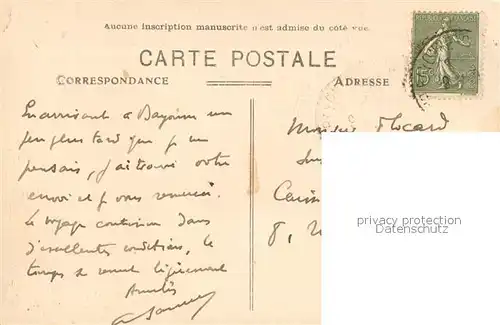 Aucune inscription manuscrite n'est admise du côté vue.
CARTE POSTALE
CORRESPONDANCE
ADRESSE
REPUBLIQUE FRANÇAISE
15c
En arrivant à Bayonne un
peu plus tard que je ne
pensais, j'ai trouvé votre
envoi et je vous remercie.
Le voyage continue dans
d'excellentes conditions, le
temps se remet légèrement
Amitiés
Monsieur Flocard
8,
privacy protection
Datenschutz